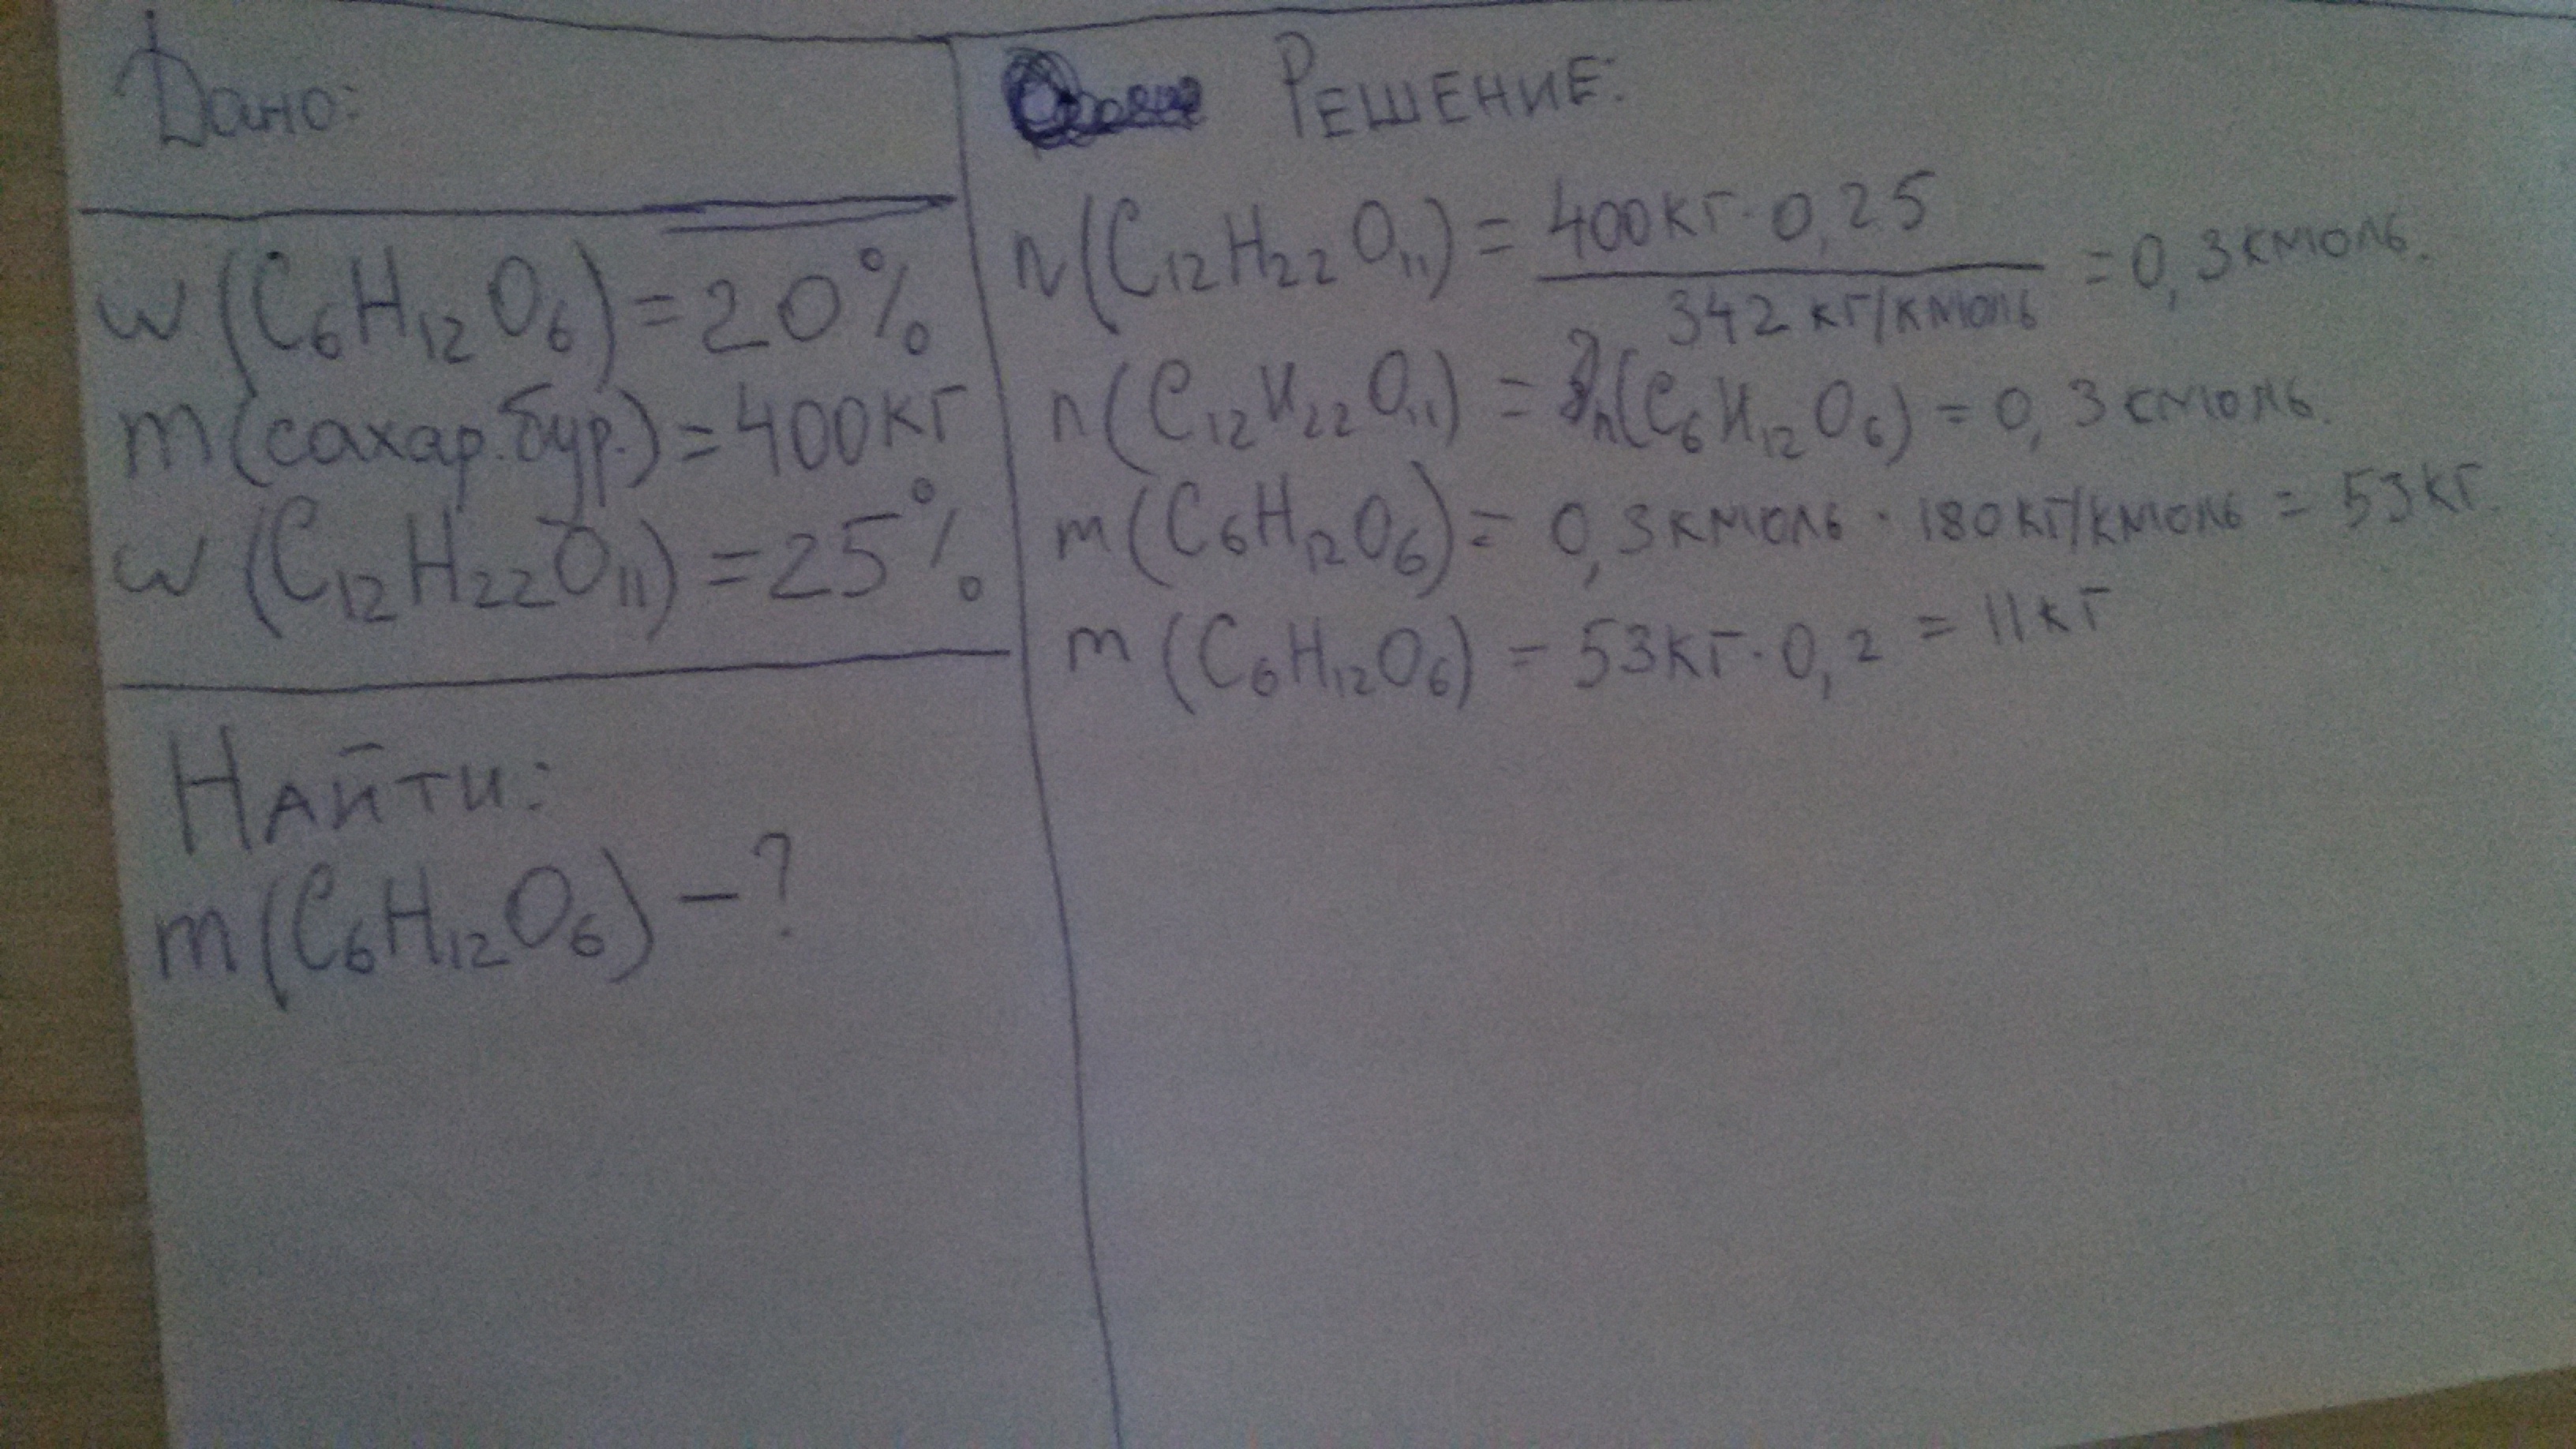 Дано:
w(C₆H₁₂O₆)=20%
m(сахар.бур.)=400кг
w(C₁₂H₂₂O₁₁)=25%
Найти:
m(C₆H₁₂O₆)–?
Решение:
n(C₁₂H₂₂O₁₁)= 400кг·0,25
342 кг/кмоль
=0,3кмоль.
n(C₁₂H₂₂O₁₁) = n(C₆H₁₂O₆)=0,3кмоль.
m(C₆H₁₂O₆)= 0,3кмоль · 180кг/кмоль = 53кг.
m(C₆H₁₂O₆)= 53кг·0,2 = 11кг